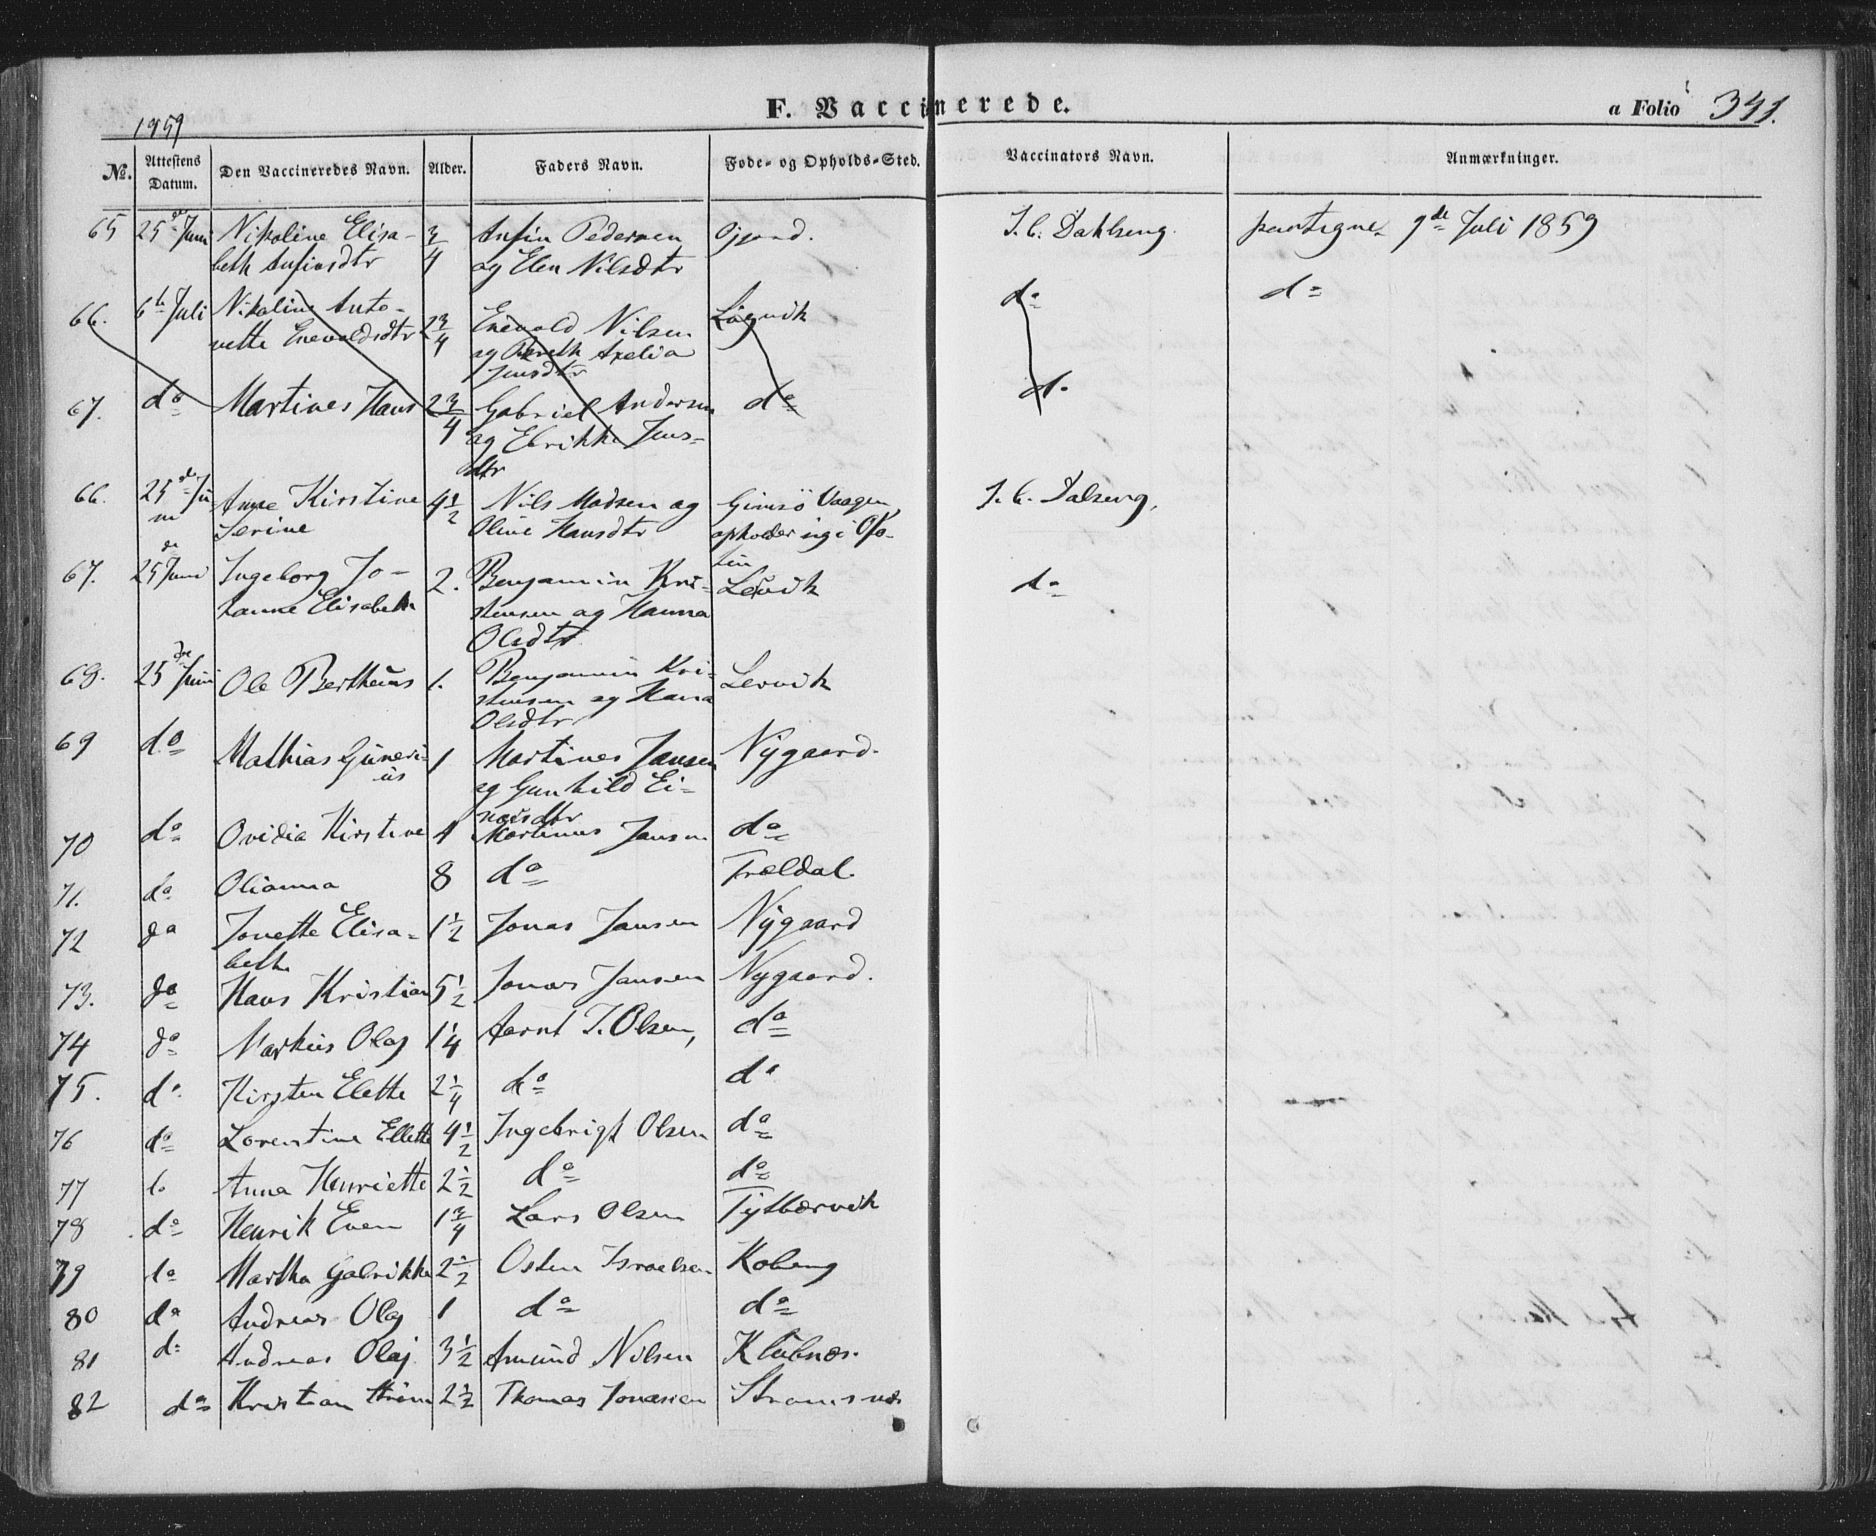 F. Vaccinerede.
a Folio 341.
1859
No. Attestens Datum. Den Vaccineredes Navn. Alder. Faders Navn. Føde- og Opholds-Sted. Vaccinators Navn. Anmærkninger.
65 25de Juni Nikoline Elisa- 3/4 Anfin Pedersen Gjerd. J. C. Dahlseng 9de Juli 1859
beth Anfinsdtr og Elen Nilsdtr
66. 6te Juli Nikoline Anto- 2 3/4 Enevold Nilsen Løgvik do do
nette Enevoldsdtr og Axelia
Jensdtr
67. do Martines Hans 2 3/4 Gabriel Andersen do do
og Elrikke Jens-
dtr
66. 25de Ju Anne Kirstine 4 1/2 Nils Madsen og Gimsø Vaagen, J. C. Dalseng,
ni Serine Oline Hansdtr opholder sig i Ofo-
ten
67. 25de Juni Ingeborg Jo- 2. Benjamin Kri- Lervik do
hanne Elisabeth stensen og Hanna
Olsdtr
68. 25de Juni Ole Bertheus 1. Benjamin Kri- Lervik
stensen og Hana
Olsdtr
69 do Mathias Guneri- 1 Martines Jansen Nygaard.
us og Gunhild Ei-
narsdtr
70 do Ovidia Kirstine 4 Martinus Jansen do
71. do Olianna 8 do Trældal.
72 do Jonette Elisa- 1 1/2 Jonas Jansen Nygaard
beth
73. do Hans Kristian 5 1/2 Jonas Jansen Nygaard.
74 do Markus Olaj 1 1/4 Aarnt J. Olsen, do
75. do Kirsten Elette 2 1/4 do do
76 do Lorentine Ellette 4 1/2 Ingebrigt Olsen do
77 do Anna Henriette 2 1/2 do do
78 do Henrik Even 1 3/4 Lars Olsen Tyttbærvik
79 do Martha Galrikke 2 1/2 Osten Israelsen Kobeng
80 do Andreas Olaj 1 do do
81 do Andreas Olaj 3 1/2 Amund Nilsen Klubnæs.
82 do Kristian 2 1/2 Thomas Jonassen Strømsnæs